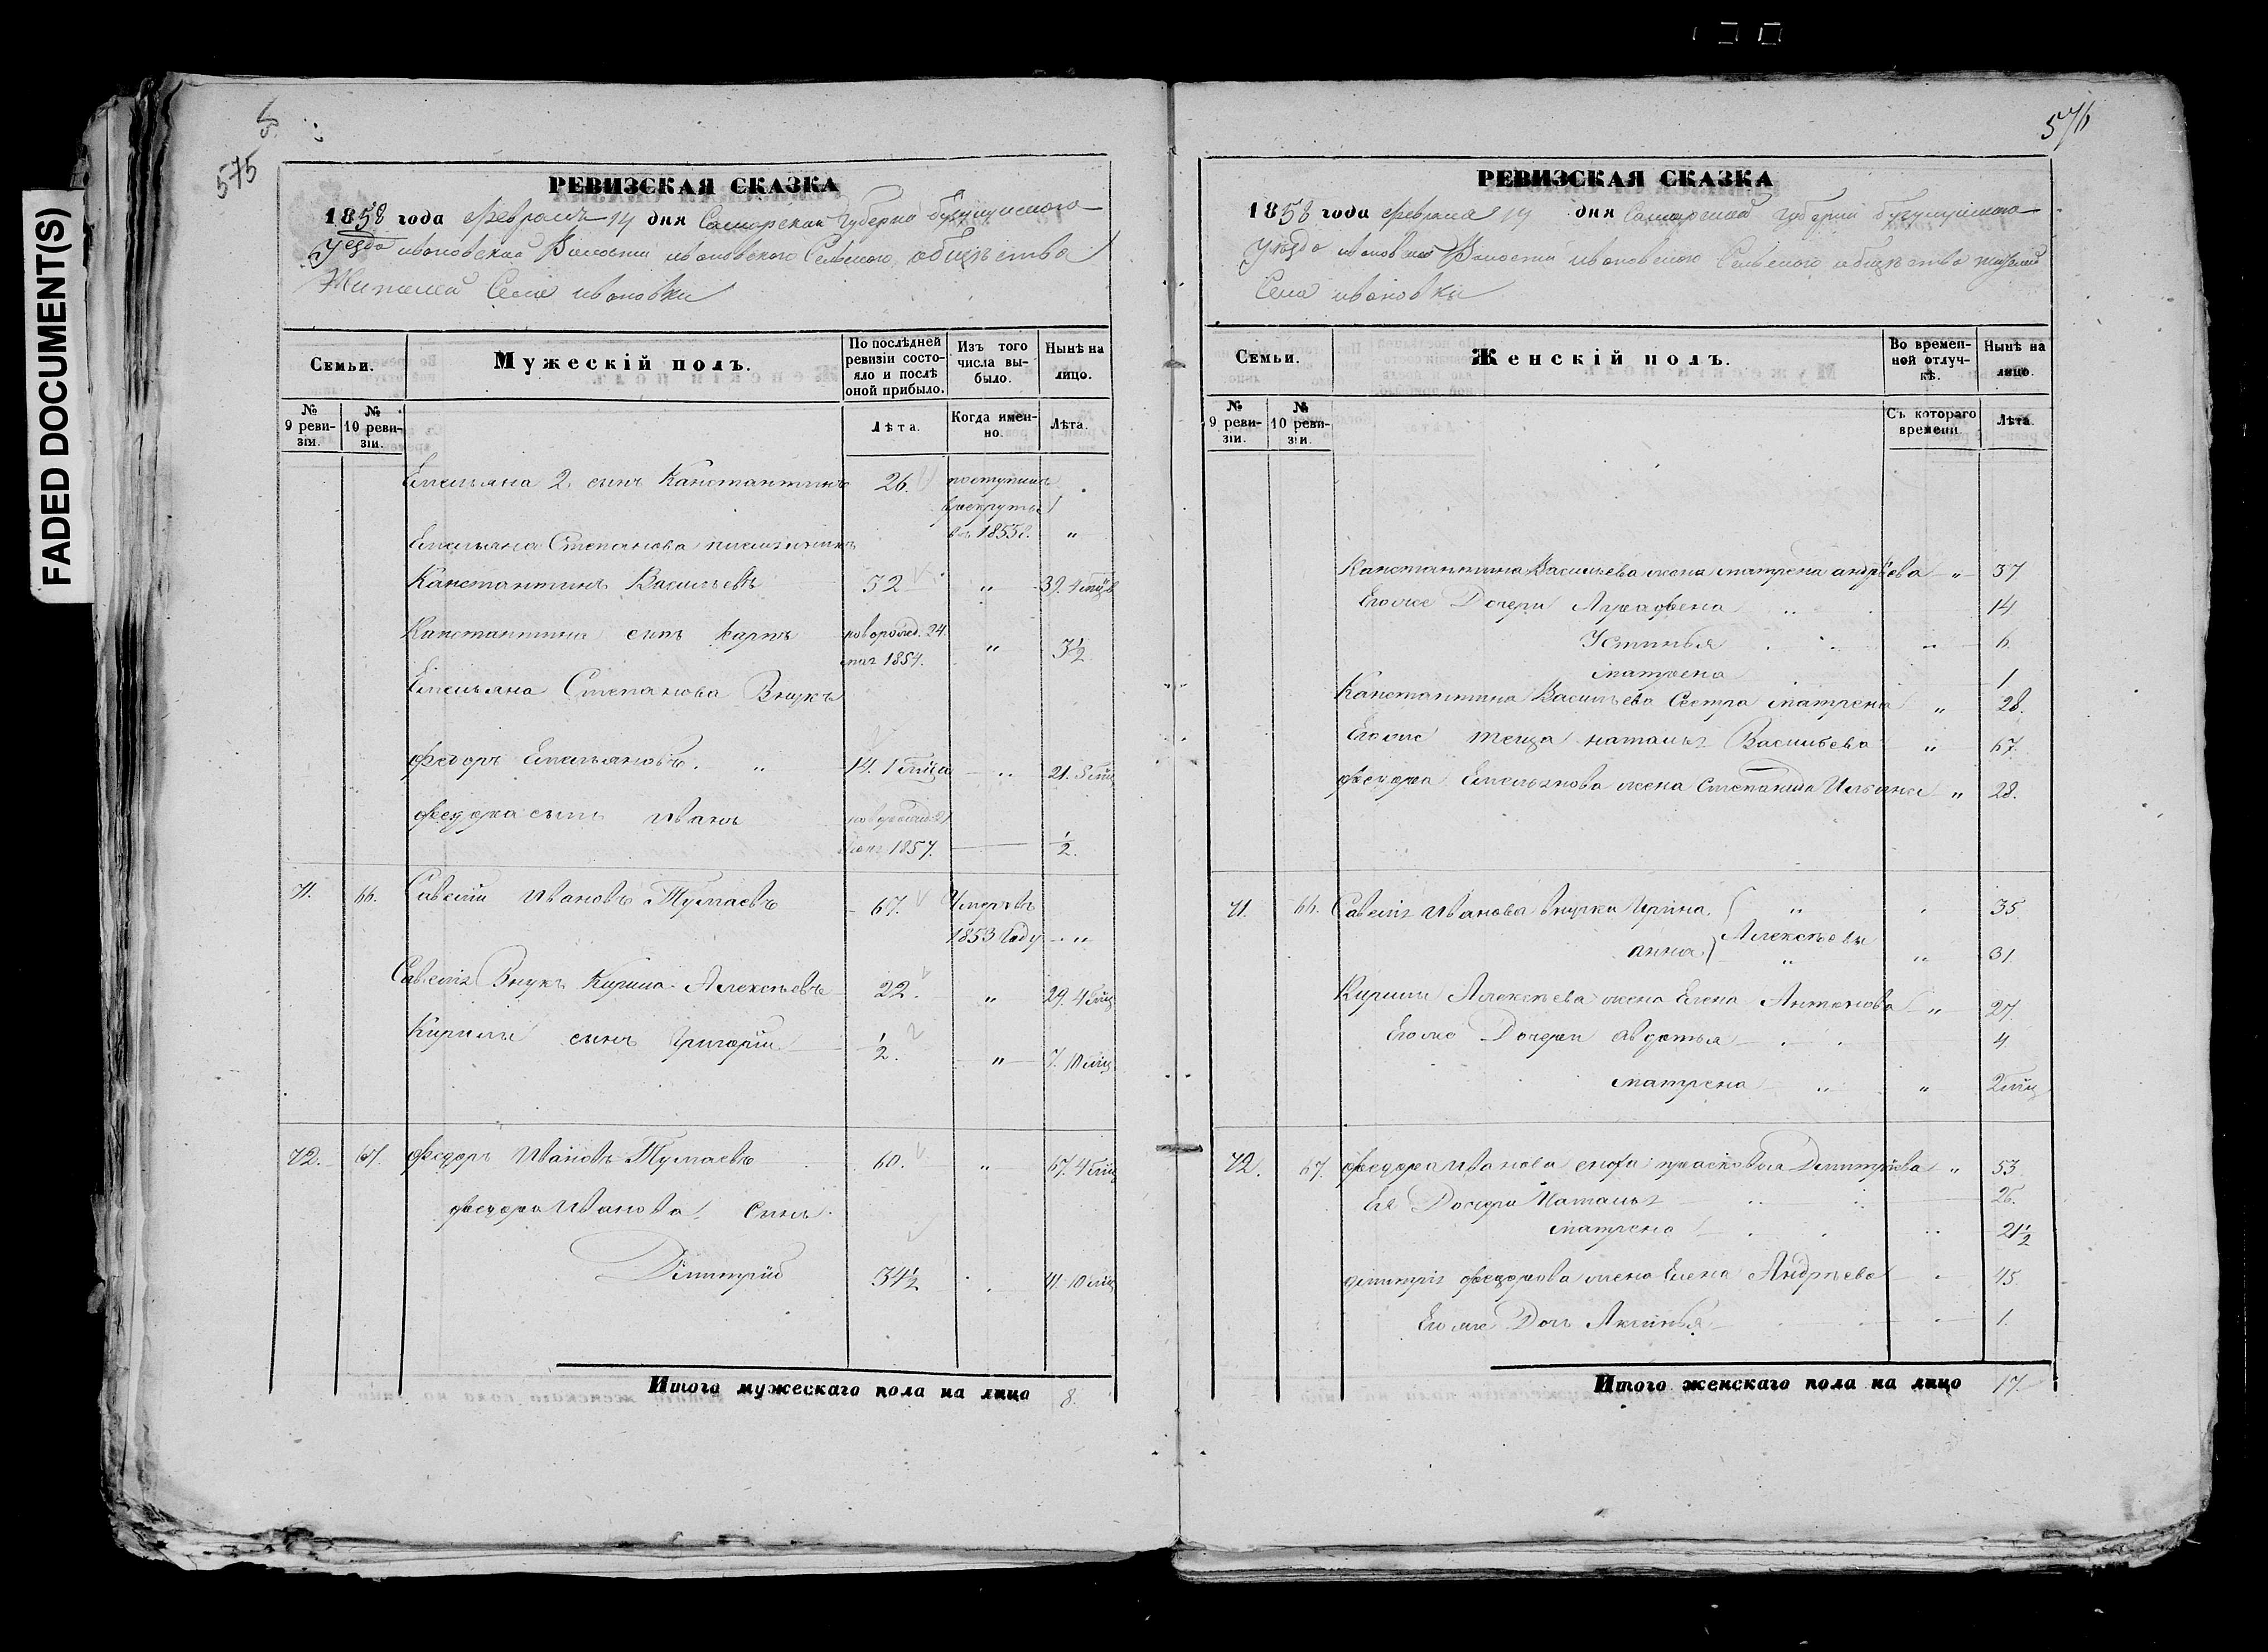 FADED DOCUMENT(S)
575
РЕВИЗСКАЯ СКАЗКА
1858 года февраля 14 дня Самарской Губерніи бугульминскаго
Уезда ивановской Волости ивановского Сельского общества
Жителей Села ивановки
Семьи.
Мужескій полъ.
По послѣдней ревизіи состояло и послѣ оной прибыло.
Изъ того числа выбыло.
Нынѣ на лицо.
№ 9 ревизіи.
№ 10 ревизіи.
Лѣта.
Когда именно.
Лѣта.
Емельяна 2 сынъ Канстантинъ 26. поступилъ
врекруты
въ 1855г. "
Емельяна Степанова племянникъ
Канстантинъ Васильевъ 32 " 39. 4 мѣц
Канстантина сынъ Карпъ новорожд. 24
1854. " 3½
Емельяна Степанова Внукъ
федоръ Емельяновъ. " 14. 1 мѣца " 21. 5 мѣц
федора сынъ Иванъ новорожд.
1857. ½.
71. 66. Савелій Ивановъ Тумаевъ 67. Умеръ въ
1853 Году "
Савелія Внукъ Кирила Алексѣевъ 22. " 29. 4 мѣц
Кирилы сынъ Григорій ½. " 7. 10 мѣц
72. 67. федоръ Ивановъ Тумаевъ 60. " 67. 4 мѣц
федора Иванова Сынъ
Дмитрій 34½ 41. 10 мѣц
Итого мужескаго пола на лицо 8.
576
РЕВИЗСКАЯ СКАЗКА
1858 года февраля 14 дня Самарской губерніи бугульминскаго
Уѣзда ивановской Волости ивановского Сельского общества жителей
Села ивановки
Семьи.
Женскій полъ.
Во временной отлучкѣ.
Нынѣ на лицо.
№ 9 ревизіи.
№ 10 ревизіи.
Съ котораго времени.
Лѣта.
Канстантина Васильева жена матрена андрѣева " 37
Егоже Дочери Аграфена " 14
Устинья " 6.
матрена 1
Канстантина Васильева Сестра матрена " 28.
Егоже теща наталья Васильева " 67.
федора Емельянова жена Степанида Ильина " 28.
71. 66. Савелія Иванова внучки Ирина " 35
анна Алексѣевы " 31
Кирилы Алексѣева жена Елена Антонова " 27
Егоже Дочери авдотья 4.
матрена " " 2 мѣц
72. 67. федора Иванова сноха прасковья Дмитріева " 53
Ея Дочери Наталья 26.
матрена " 21½
дмитрія федорова жена Елена Андрѣева 45
Егоже Дочь Аксинья 1.
Итого женскаго пола на лицо 17.